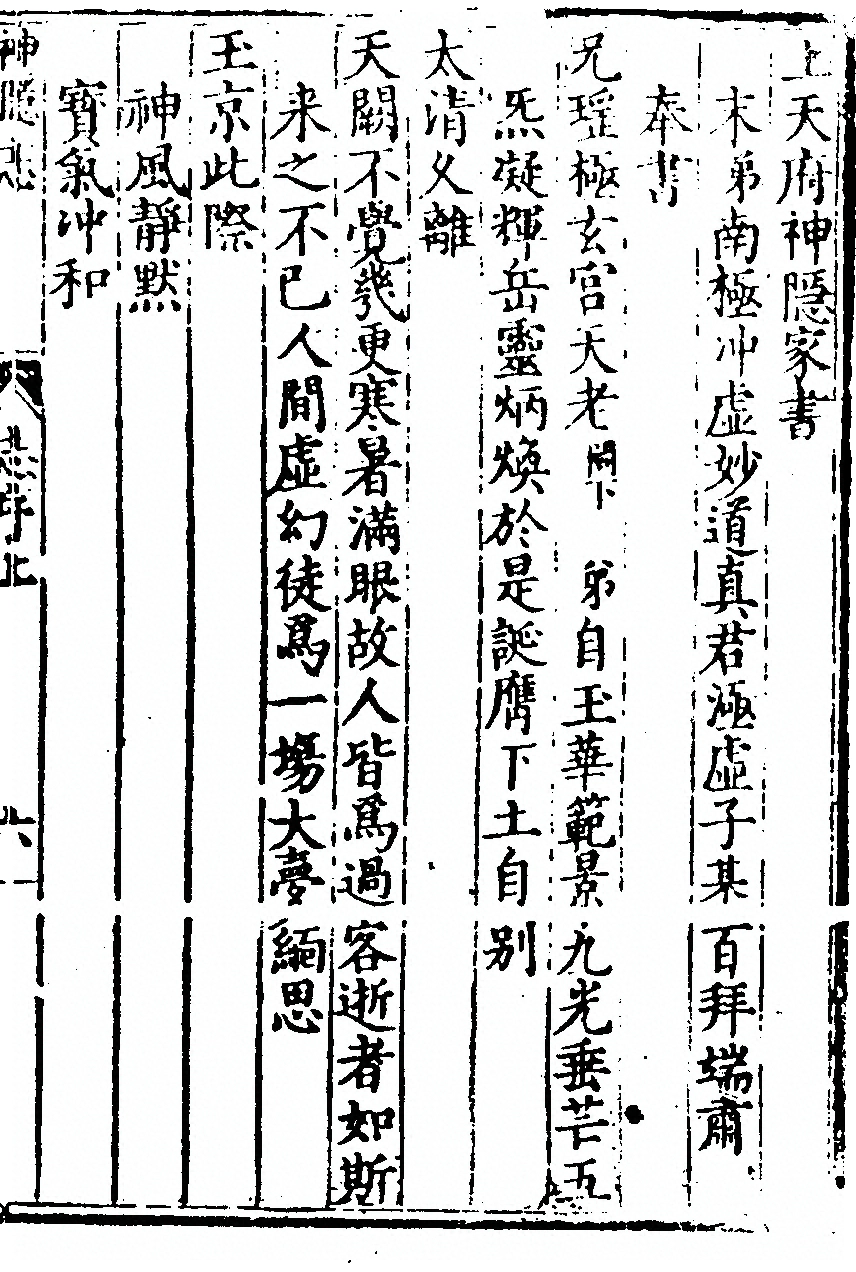 上天府神隠家書
末弟南極冲虛妙道真君涵虛子某百拜端肅
奉書
兄瑤極玄宮天老閣下 弟自玉華範景九光垂芒五
炁凝輝岳靈炳煥於是誕膺下土自别
太清久離
天闕不覺幾更寒暑滿眼故人皆爲過客逝者如斯
来之不已人間虛幻徒爲一塲大夣緬思
玉京此際
神風靜默
寶氣冲和
神隠志
序
六